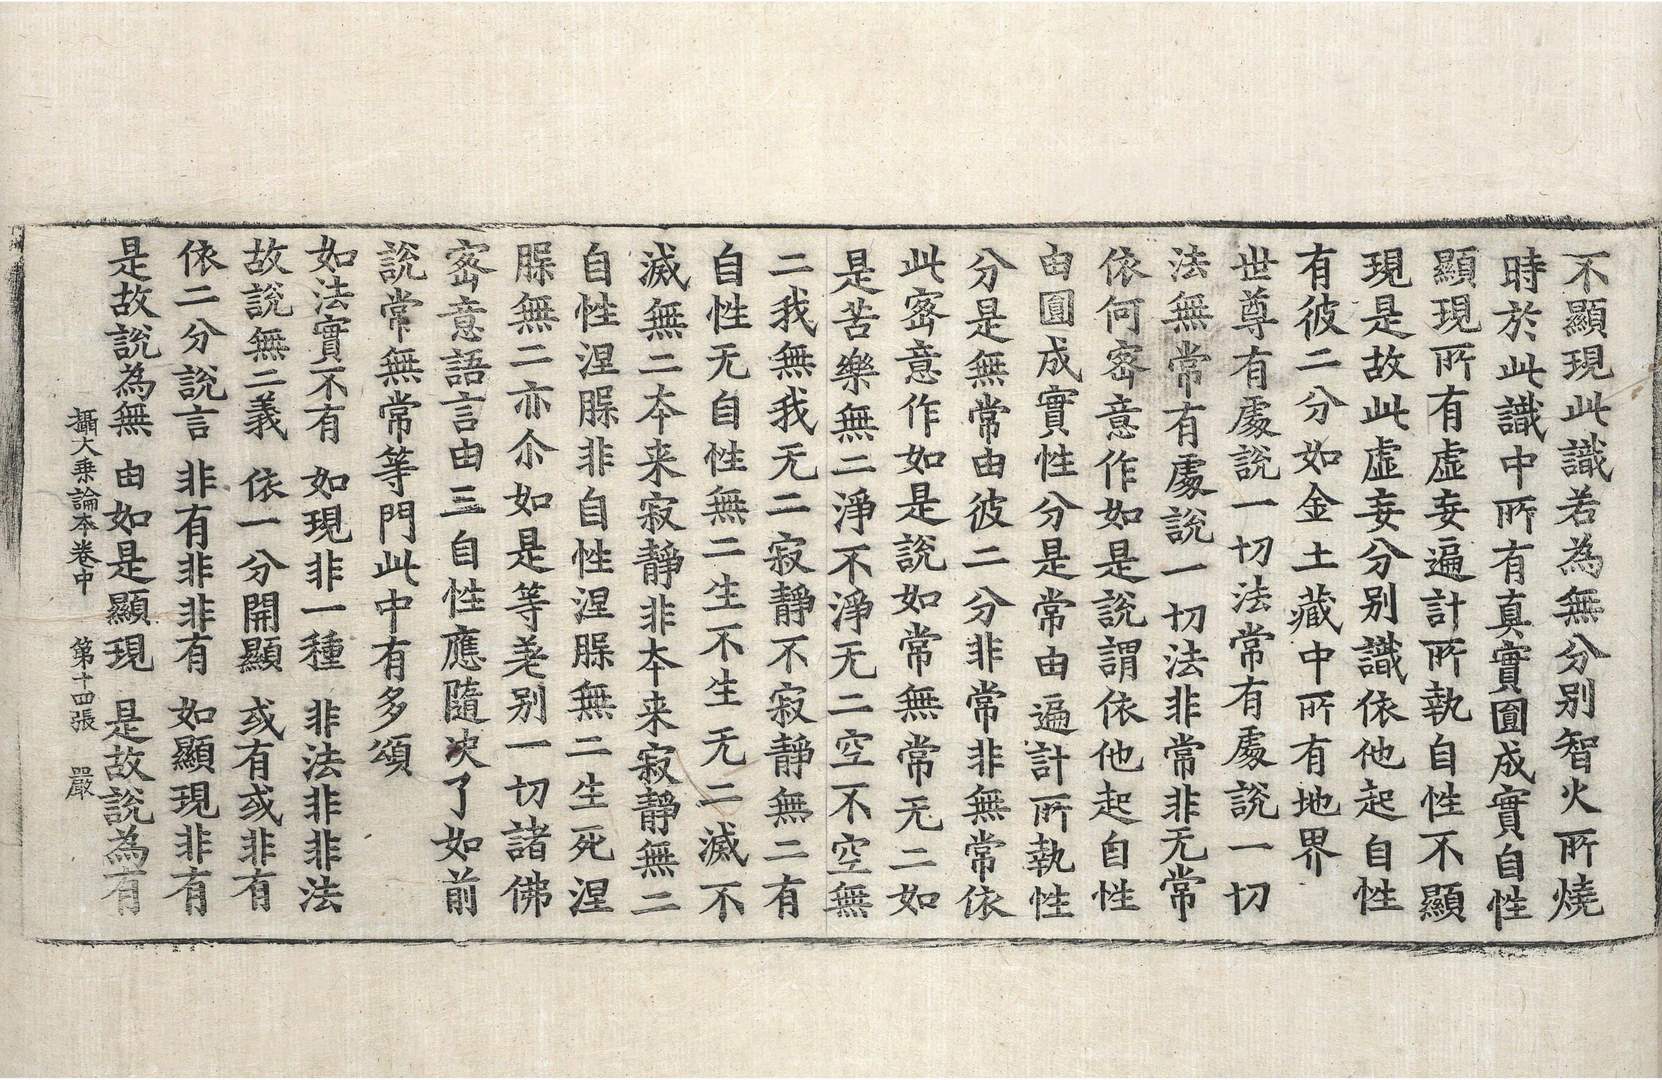 不顯現此識若為無分別智火所燒
時於此識中所有真實圓成實自性
顯現所有虛妄遍計所執自性不顯
現是故此虛妄分別識依他起自性
有彼二分如金土藏中所有地界
世尊有處說一切法常有處說一切
法無常有處說一切法非常非无常
依何密意作如是說謂依他起自性
由圓成實性分是常由遍計所執性
分是無常由彼二分非常非無常依
此密意作如是說如常無常无二如
是苦樂無二淨不淨无二空不空無
二我無我无二寂靜不寂靜無二有
自性无自性無二生不生无二滅不
滅無二本来寂靜非本来寂靜無二
自性涅槃非自性涅槃無二生死涅
槃無二亦尒如是等差別一切諸佛
密意語言由三自性應隨决了如前
說常無常等門此中有多頌
如法實不有　如現非一種　非法非非法
故說無二義　依一分開顯　或有或非有
依二分說言　非有非非有　如顯現非有
是故說為無　由如是顯現　是故說為有
攝大乘論本卷中　第十四張　嚴